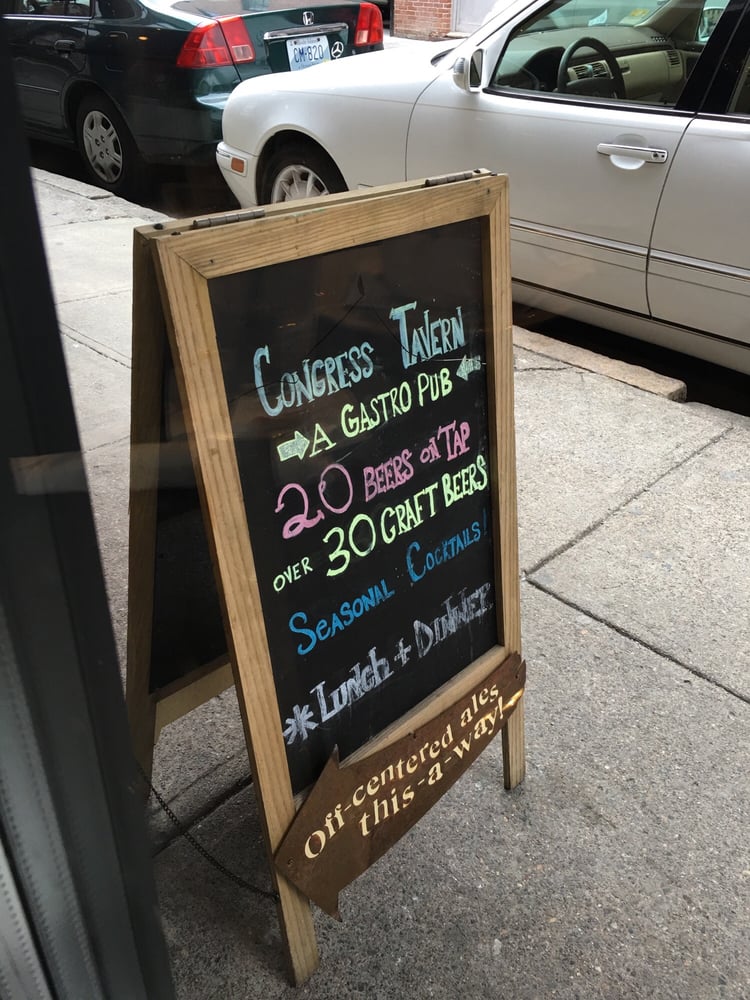 CONGRESS TAVERN
A GASTRO PUB
20 BEERS ON TAP
OVER 30 GRAFT BEERS
SEASONAL COCKTAILS!
*LUNCH + DINNER
Off-centered ales
this-a-way!
CM·820